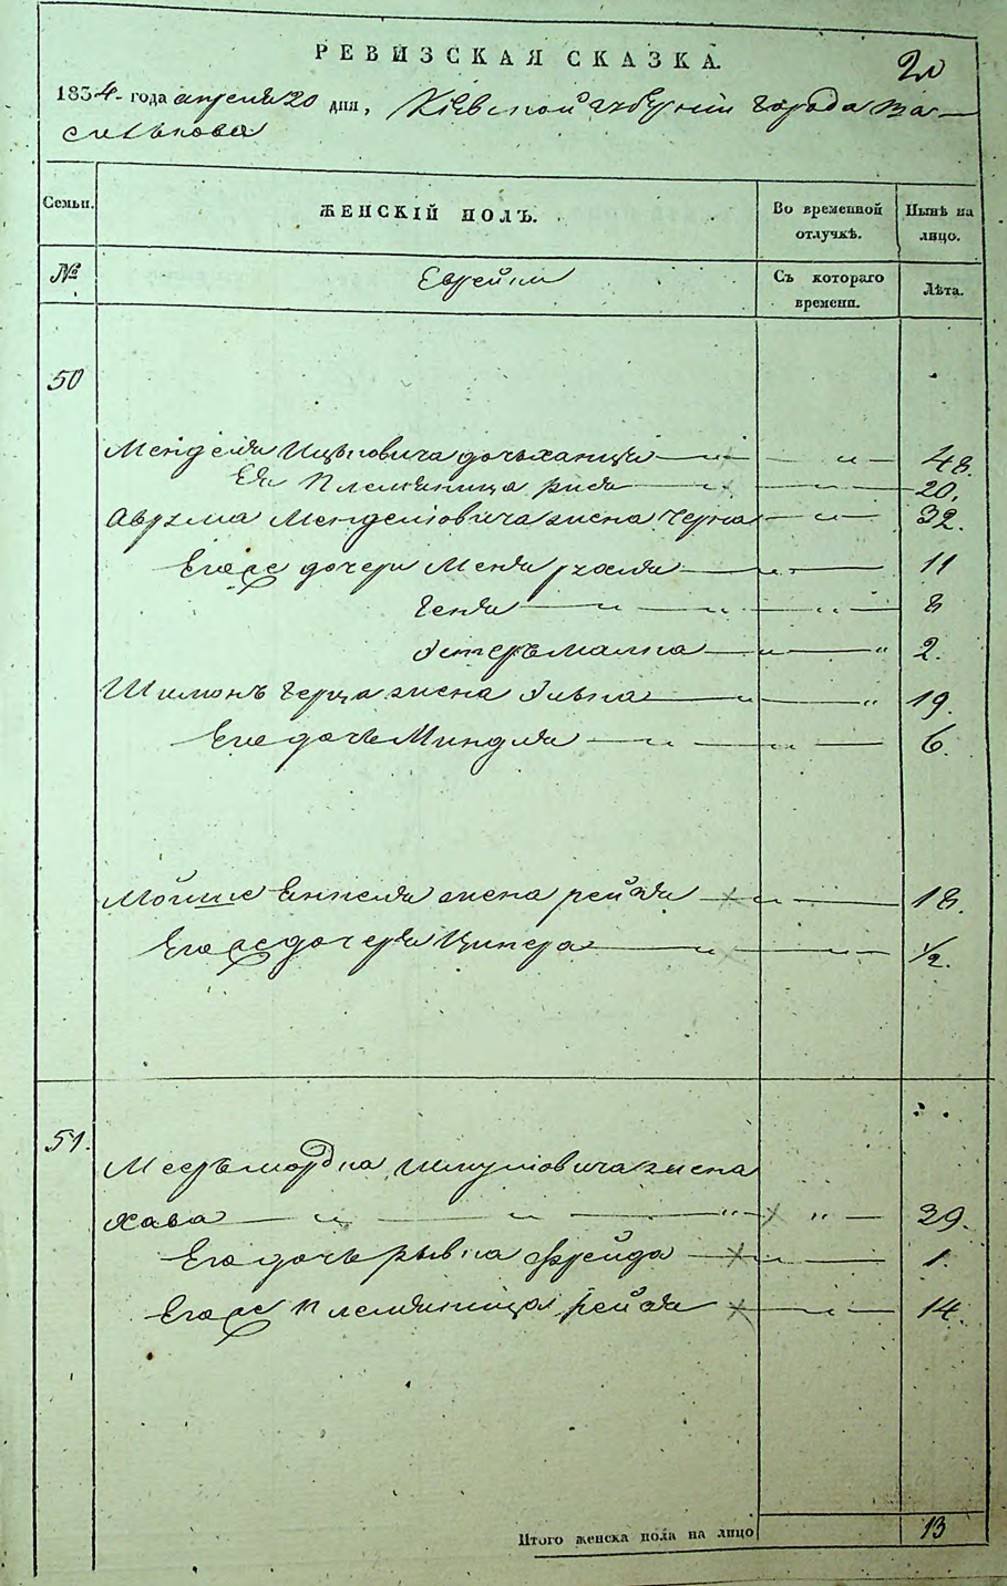 РЕВИЗСКАЯ СКАЗКА.
20
1834 года апреля 20 дня, Кіевской губерніи города Ва-
силькова
Семьи. ЖЕНСКІЙ ПОЛЪ. Во временной отлучкѣ. Нынѣ на лицо.
№ Еврейки Съ котораго времени. Лѣта.
50
Менделя Ицьковича дочь ханця — „ — „ — 48.
Ея Племяница рися — „ — „ — 20.
Аврума Менделіовича жена Черна — „ — 32.
Егоже дочери Меня рухля — „ — 11
Геня — „ — „ — „ — 8
Эстеръ малка — „ — „ 2.
Шимонъ Герша жена Элька — „ — „ 19.
Его дочь Миндля — „ — „ — 6.
Мойше Янкеля жена рейзя — „ — 18.
Егоже дочеря Ципера — „ — „ — 1/2.
51.
Мееръ мордка Шмуліовича жена
Хава — „ — „ — „ „ — 29.
Его дочь рывка фрейда — „ — 1.
Егоже племяница рейзя — „ — 14.
Итого женска пола на лицо 13